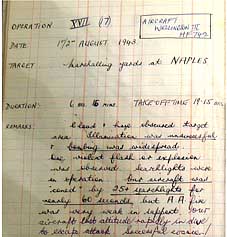 OPERATION XVII (17)
AIRCRAFT
WELLINGTON III
HF742
DATE 1/2ND AUGUST 1943
TARGET Marshalling yards at NAPLES
DURATION: 6 hrs 15 mins. TAKE OFF TIME 19.15
REMARKS: Cloud & haze obscured target
area. Illumination was unsuccessful
& bombing was widespread.
One violent flash or explosion
was observed. Searchlights were
in operation but aircraft was
"coned" by 25+ searchlights for
nearly 60 seconds, but A.A. fire
was very weak in support. Our
aircraft lost altitude rapidly in dive
to escape attack. Successful